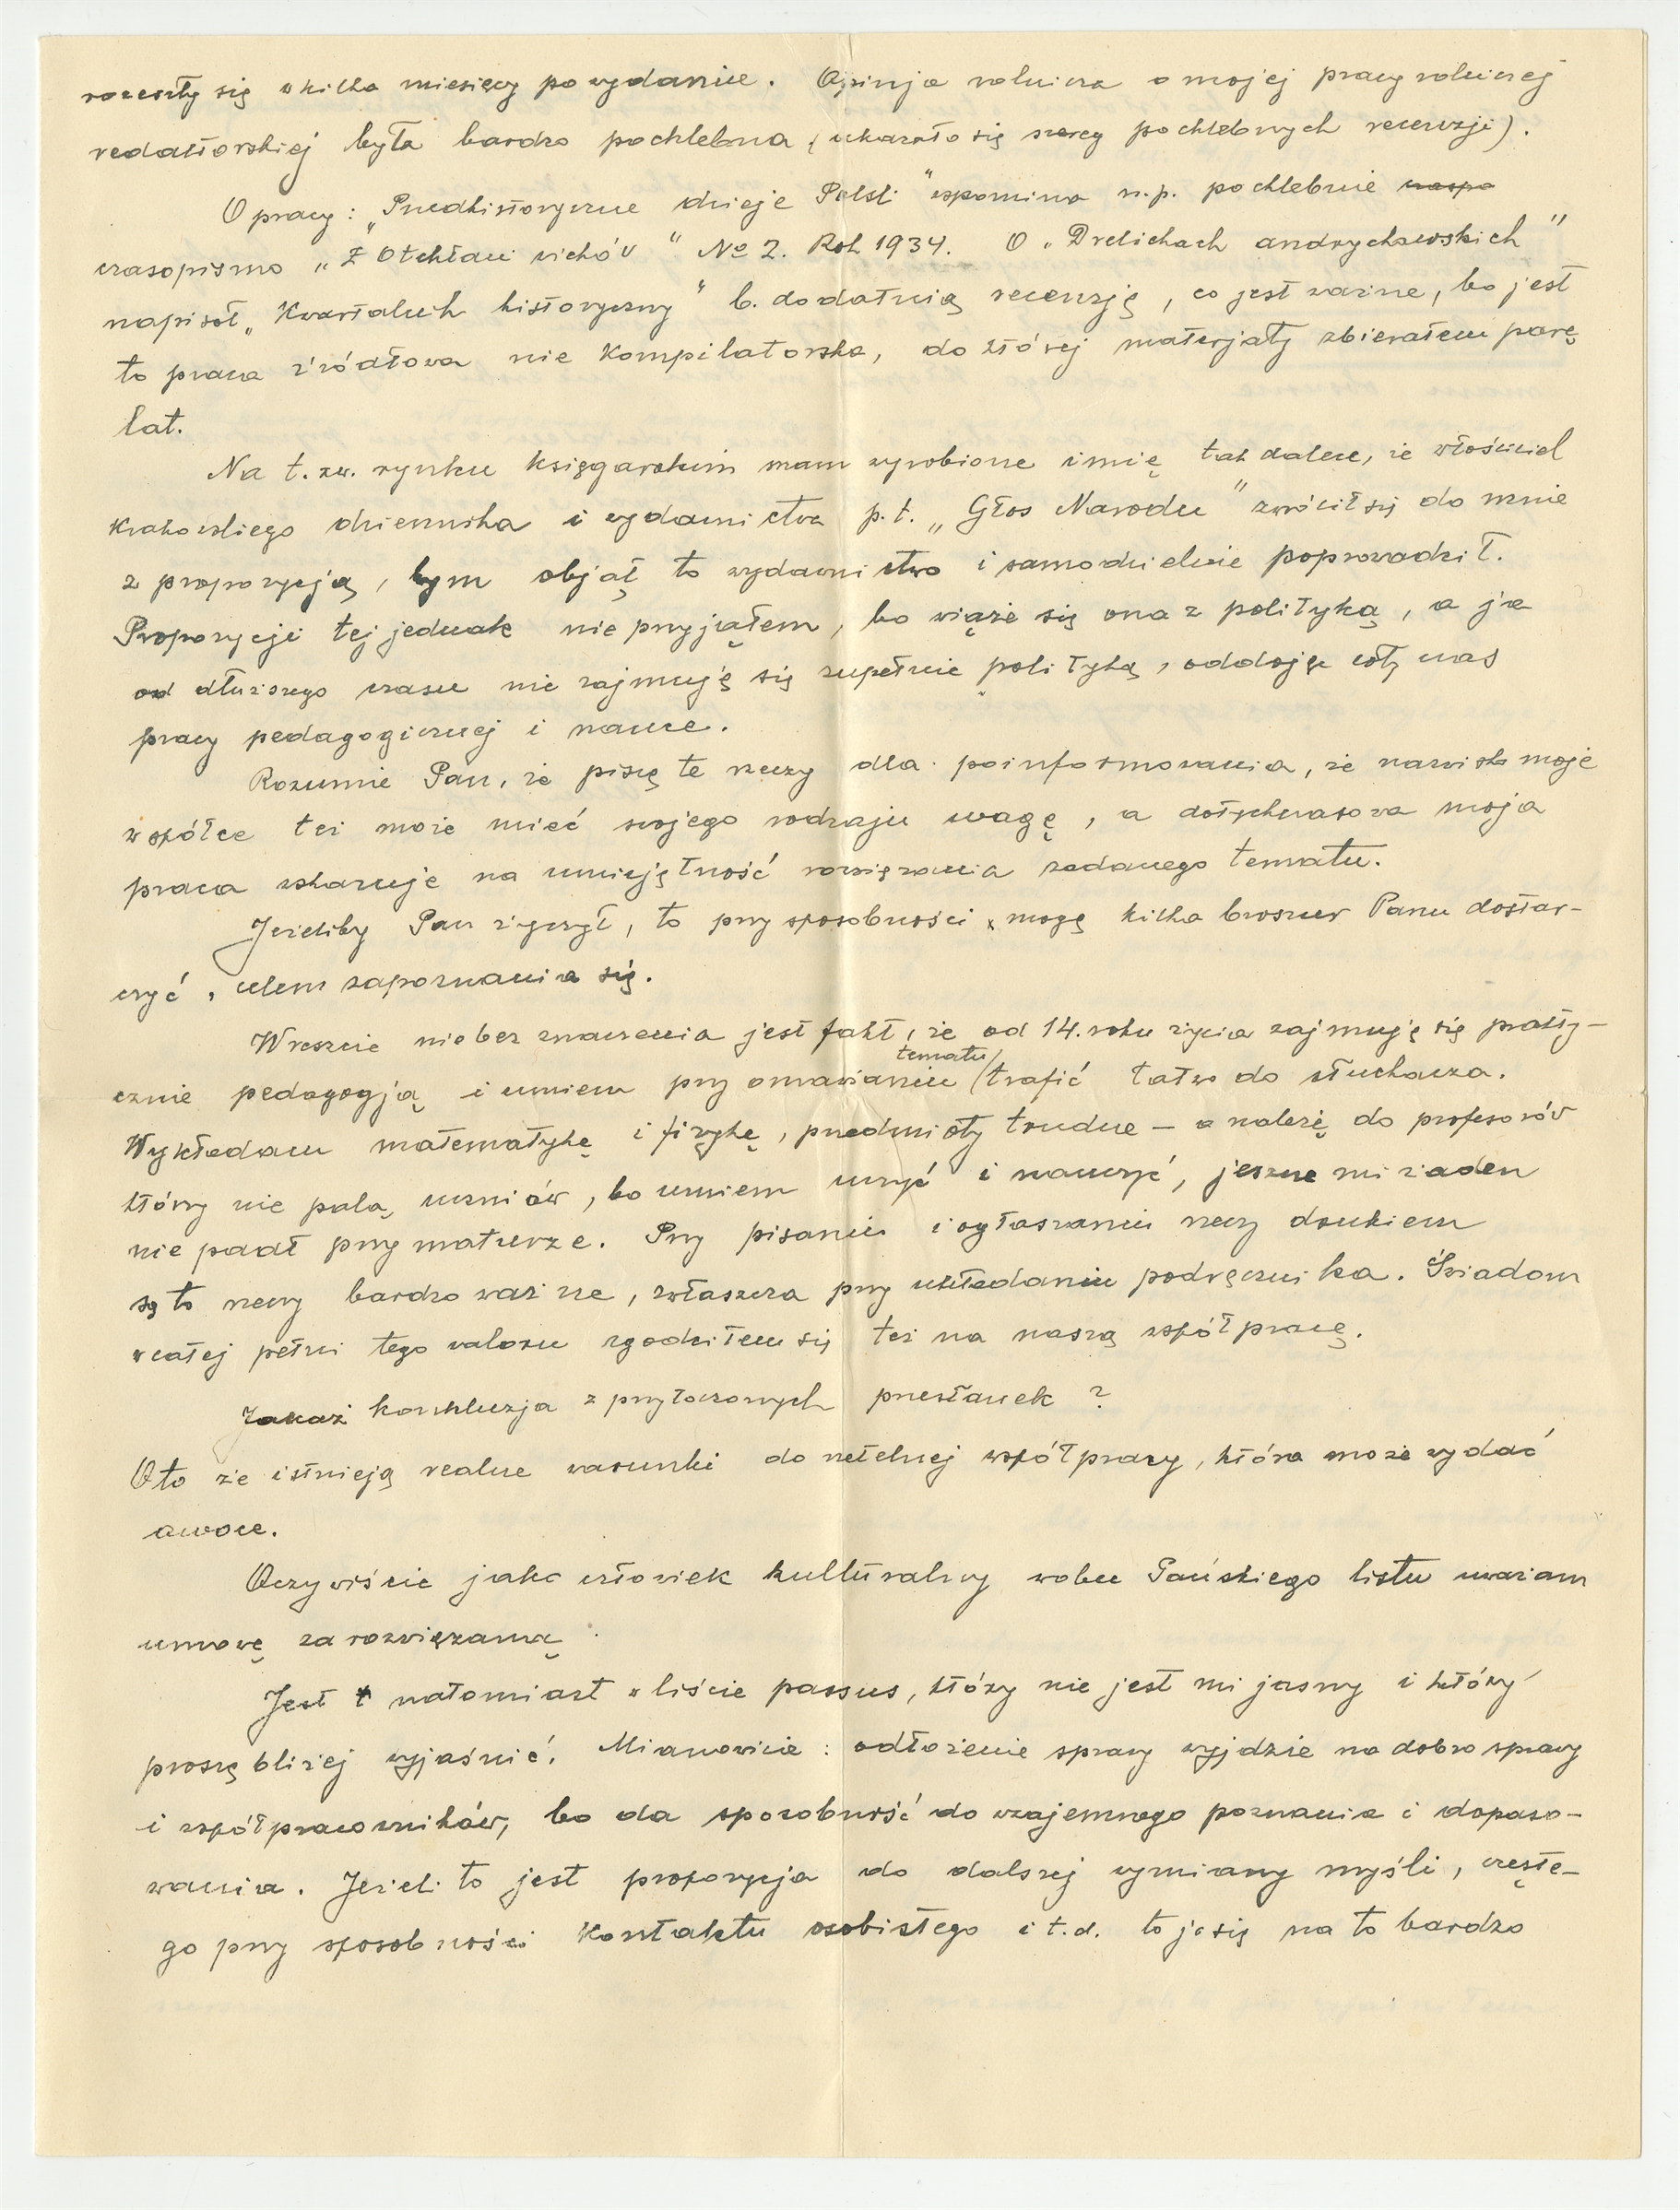 rozeszły się w kilka miesięcy po wydaniu. Opinja rolnicza o mojej pracy rolniczej
redaktorskiej była bardzo pochlebna (ukazało się szereg pochlebnych recenzji).
O pracy: „Przedhistoryczne dzieje Polski" wspomina n.p. pochlebnie czaspo
czasopismo „Z Otchłani wieków" No 2. Rok 1934. O „Drelichach andrychowskich"
napisał „Kwartalnik historyczny" b. dodatnią recenzję, co jest ważne, bo jest
to praca źródłowa nie kompilatorska, do której materjały zbierałem parę
lat.
Na t.zw. rynku księgarskim mam wyrobione imię tak dalece, że właściciel
krakowskiego dziennika i wydawnictwa p.t. „Głos Narodu" zwrócił się do mnie
z propozycją, bym objął to wydawnictwo i samodzielnie poprowadził.
Propozycji tej jednak nie przyjąłem, bo wiąże się ona z polityką, a ja
od dłuższego czasu nie zajmuję się zupełnie polityką, oddaję cały czas
pracy pedagogicznej i nauce.
Rozumie Pan, że piszę te rzeczy dla poinformowania, że nazwisko moje
w spółce też może mieć swojego rodzaju wagę, a dotychczasowa moja
praca wskazuje na umiejętność rozwiązania zadanego tematu.
Jeżeliby Pan życzył, to przy sposobności mogę kilka broszur Panu dostar-
czyć, celem zapoznania się.
Wreszcie nie bez znaczenia jest fakt, że od 14. roku życia zajmuję się prakty-
cznie pedagogją i umiem przy omawianiu tematu trafić łatwo do słuchacza.
Wykładam matematykę i fizykę, przedmioty trudne – a należę do profesorów
którzy nie palą uczniów, bo umiem uczyć i nauczyć, jeszcze mi żaden
nie padł przy maturze. Przy pisaniu i ogłaszaniu rzeczy drukiem
są to rzeczy bardzo ważne, zwłaszcza przy układaniu podręcznika. Świadom
w całej pełni tego waloru zgodziłem się też na naszą współpracę.
Jakaż konkluzja z przytoczonych przesłanek?
Oto że istnieją realne warunki do rzetelnej współpracy, która może wydać
owoce.
Oczywiście jako człowiek kulturalny wobec Pańskiego listu uważam
umowę za rozwiązaną.
Jest natomiast w liście passus, który nie jest mi jasny i który
proszę bliżej wyjaśnić. Mianowicie: odłożenie sprawy wyjdzie na dobro sprawy
i współpracowników, bo da sposobność do wzajemnego poznania i dopaso-
wania. Jeżeli to jest propozycja do dalszej wymiany myśli, częste-
go przy sposobności kontaktu osobistego i t.d. to ja się na to bardzo